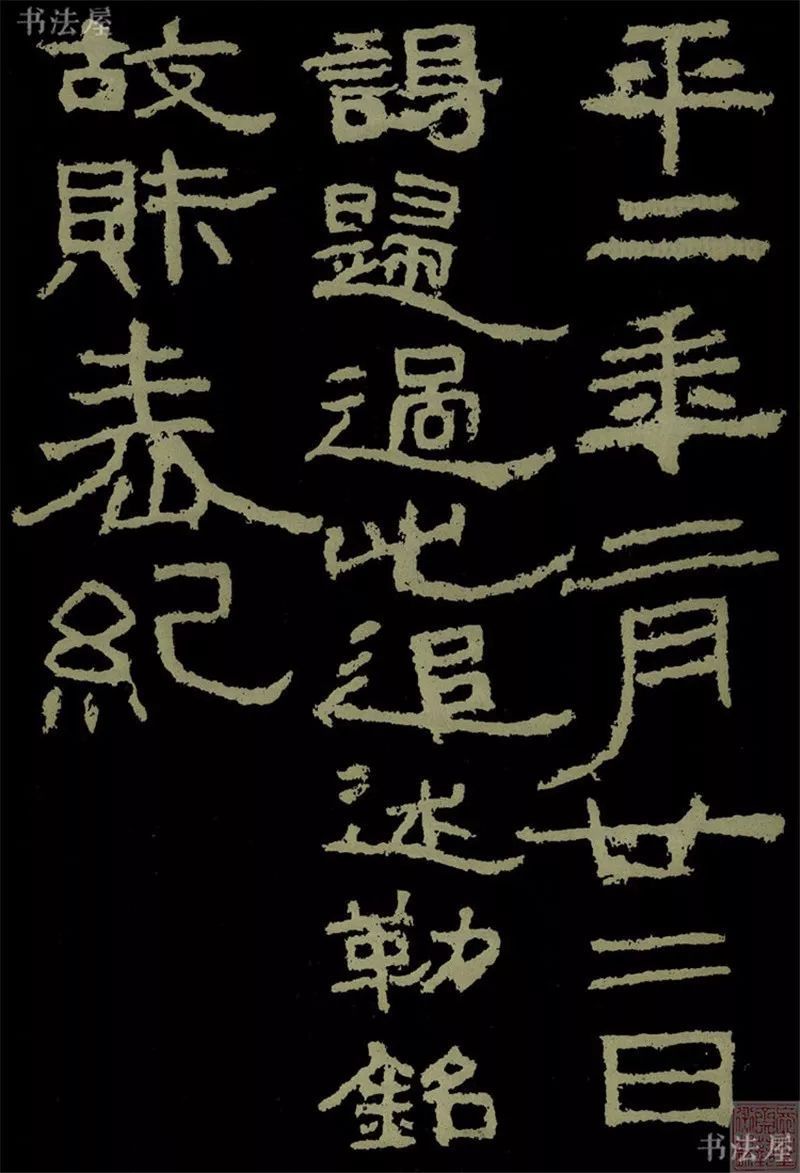 书法屋
平二年二月廿二日
謁歸過此追述勒銘
故財表紀
书法屋